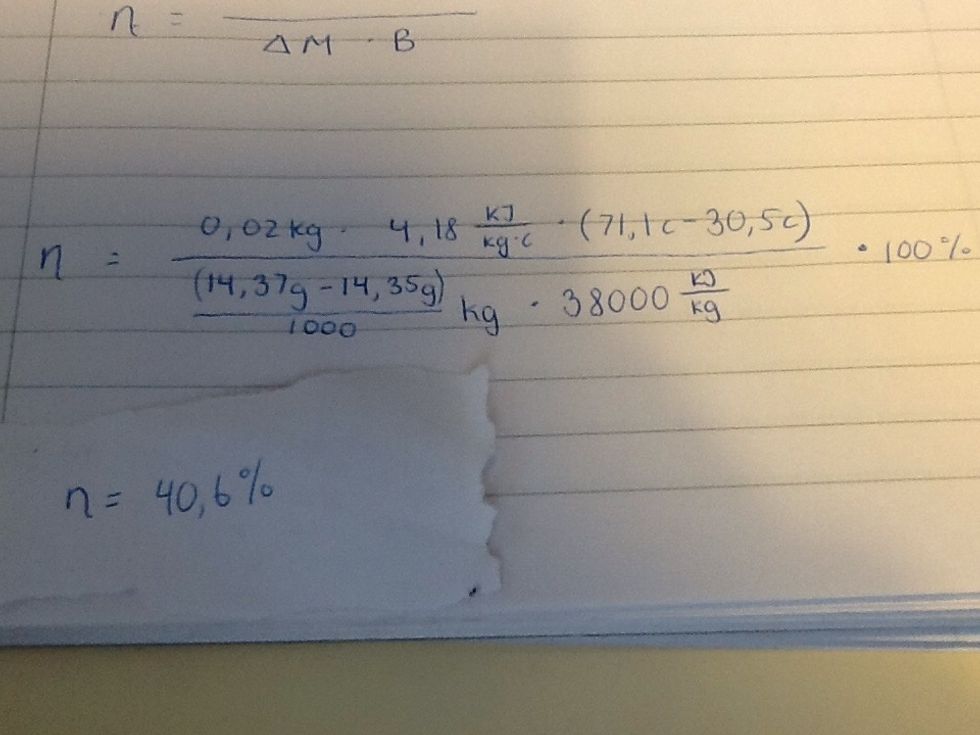 n = ___
ΔM · B
n = 0,02 kg · 4,18 kJ/kg·c · (71,1c - 30,5c) · 100%
(14,37g - 14,35g)/1000 kg · 38000 kJ/kg
n = 40,6%